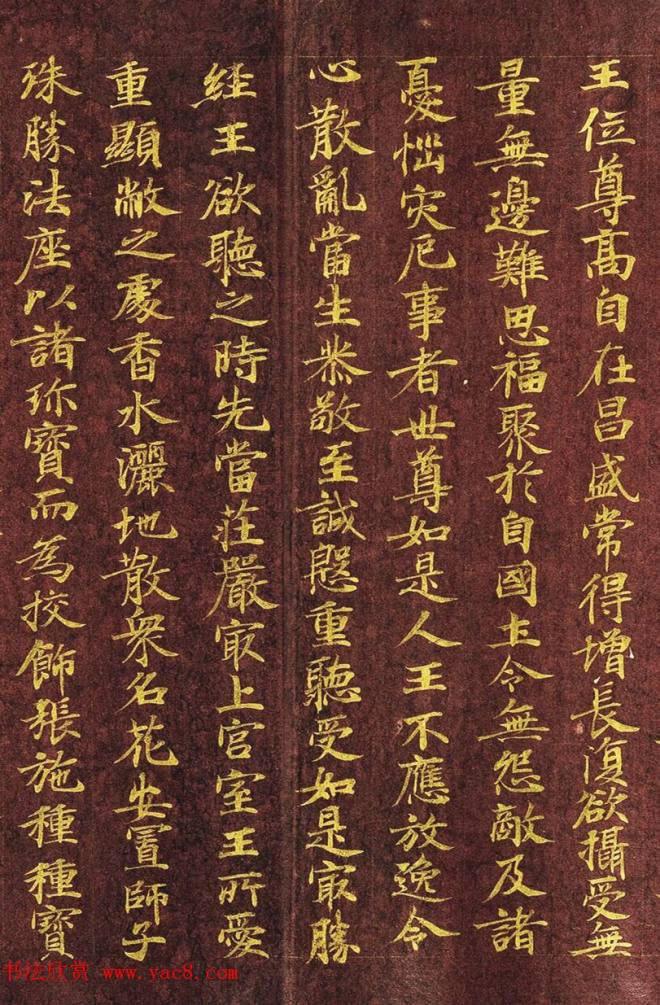 王位尊髙自在昌盛常得增長復欲攝受無
量無邊難思福聚於自國土令無怨敵及諸
憂惱灾厄事者世尊如是人王不應放逸令
心散亂當生恭敬至誠慇重聽受如是冣勝
經王欲聽之時先當莊嚴冣上宮室王所愛
重顯敞之處香水灑地散衆名花安置師子
殊勝法座以諸珎寶而為挍飾張施種種寶
书法欣赏 www.yac8.com